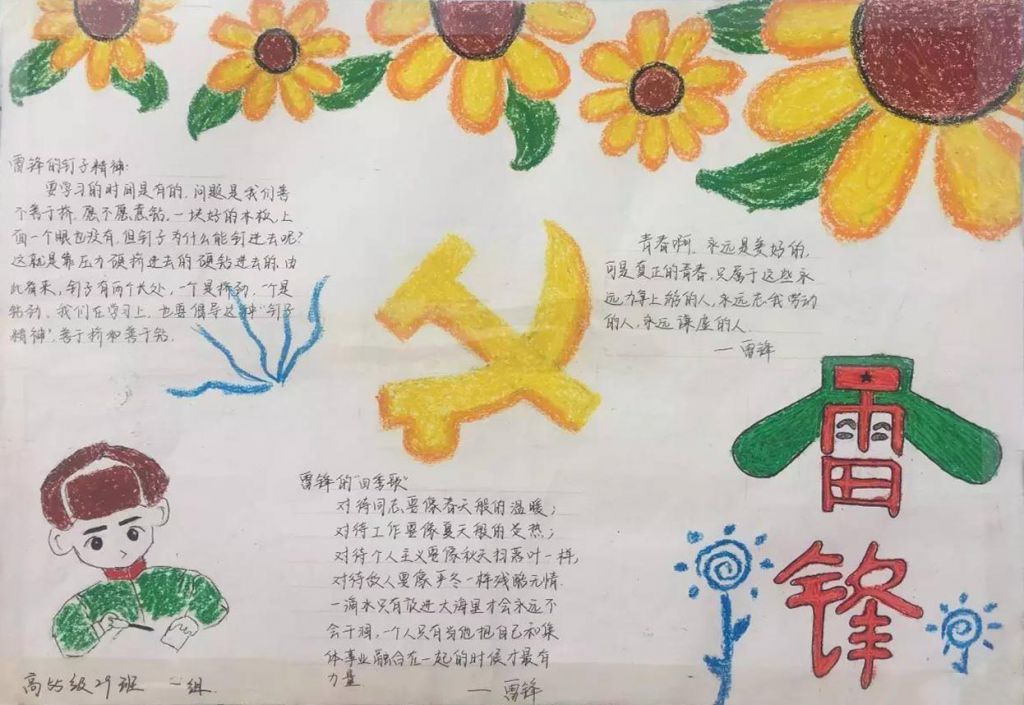 雷锋的钉子精神:
要学习的时间是有的,问题是我们善
不善于挤,愿不愿意钻,一块好的木板,上
面一个眼也没有,但钉子为什么能钉进去呢?
这就是靠压力硬挤进去的,硬钻进去的,由
此看来,钉子有两个长处,一个是挤劲,一个是
钻劲、我们在学习上,也要倡导这种"钉子
精神",善于挤和善于钻.
青春啊,永远是美好的,
可是真正的青春,只属于这些永
远力争上游的人,永远忘我劳动
的人,永远谦虚的人.
—雷锋
雷锋的"四季歌"
对待同志要像春天般的温暖;
对待工作要像夏天般的炎热;
对待个人主义要像秋天扫落叶一样,
对待敌人要像严冬一样残酷无情.
一滴水只有放进大海里才会永远不
会干涸,一个人只有当他把自己和集
体事业融合在一起的时候才最有
力量
—雷锋
雷锋
高55级29班 一组